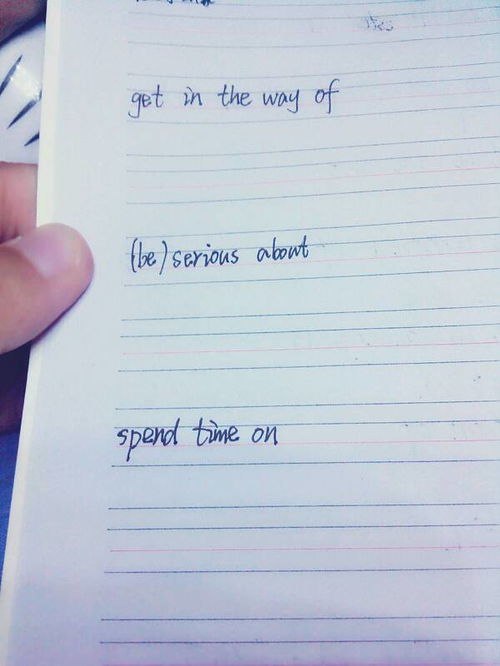 get in the way of
(be) serious about
spend time on